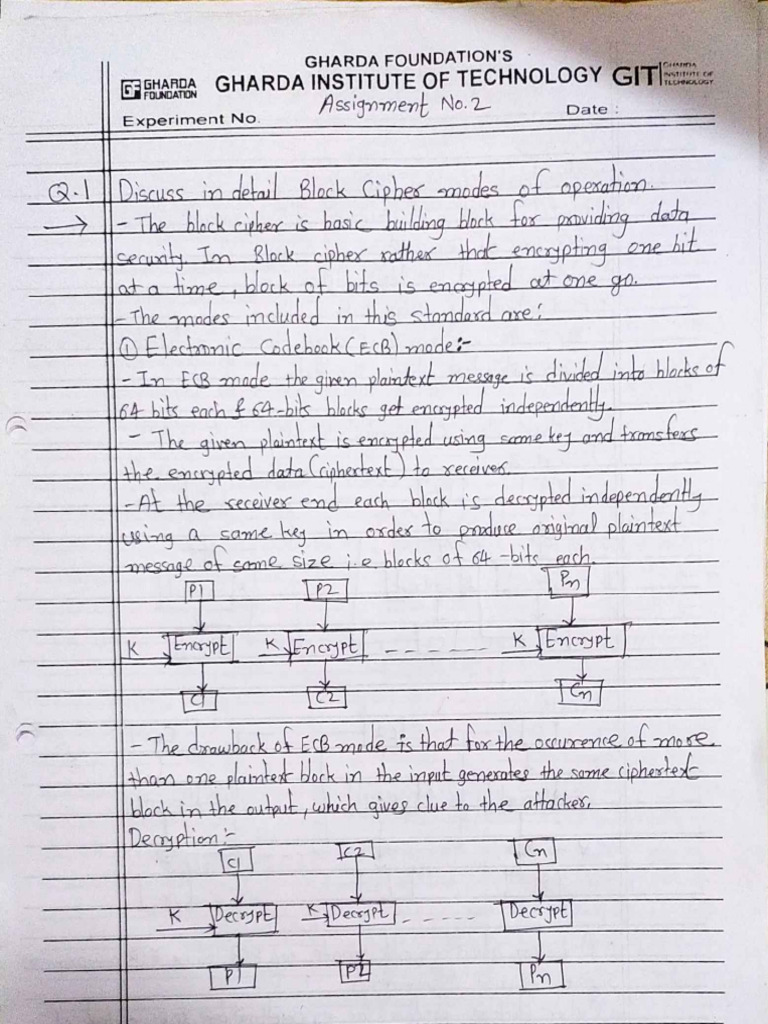 GHARDA FOUNDATION'S
GF GHARDA FOUNDATION GHARDA INSTITUTE OF TECHNOLOGY GIT GHARDA INSTITUTE OF TECHNOLOGY
Experiment No. Assignment No.2 Date :
Q.1 Discuss in detail Block Cipher modes of operation.
→ - The block cipher is basic building block for providing data
security. In Block cipher rather that encrypting one bit
at a time, block of bits is encrypted at one go.
- The modes included in this standard are:
① Electronic Codebook (ECB) mode:-
- In ECB mode the given plaintext message is divided into blocks of
64 bits each & 64-bits blocks get encrypted independently.
- The given plaintext is encrypted using same key and transfers
the encrypted data (ciphertext) to receiver.
- At the receiver end each block is decrypted independently
using a same key in order to produce original plaintext
message of same size i.e blocks of 64-bits each.
P1 P2 Pn
K Encrypt K Encrypt K Encrypt
C1 C2 Cn
- The drawback of ECB mode is that for the occurrence of more
than one plaintext block in the input generates the same ciphertext
block in the output, which gives clue to the attacker.
Decryption:-
C1 C2 Cn
K Decrypt K Decrypt Decrypt
P1 P2 Pn